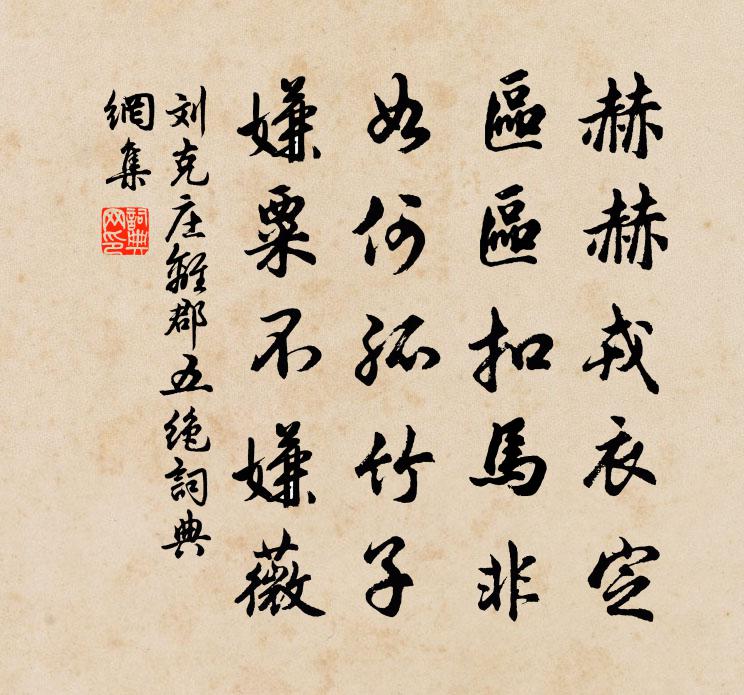 赫赫戎衣定
區區扣馬非
如何孤竹子
嫌粟不嫌薇
刘克庄離郡五绝詞典
網集
詞典网印